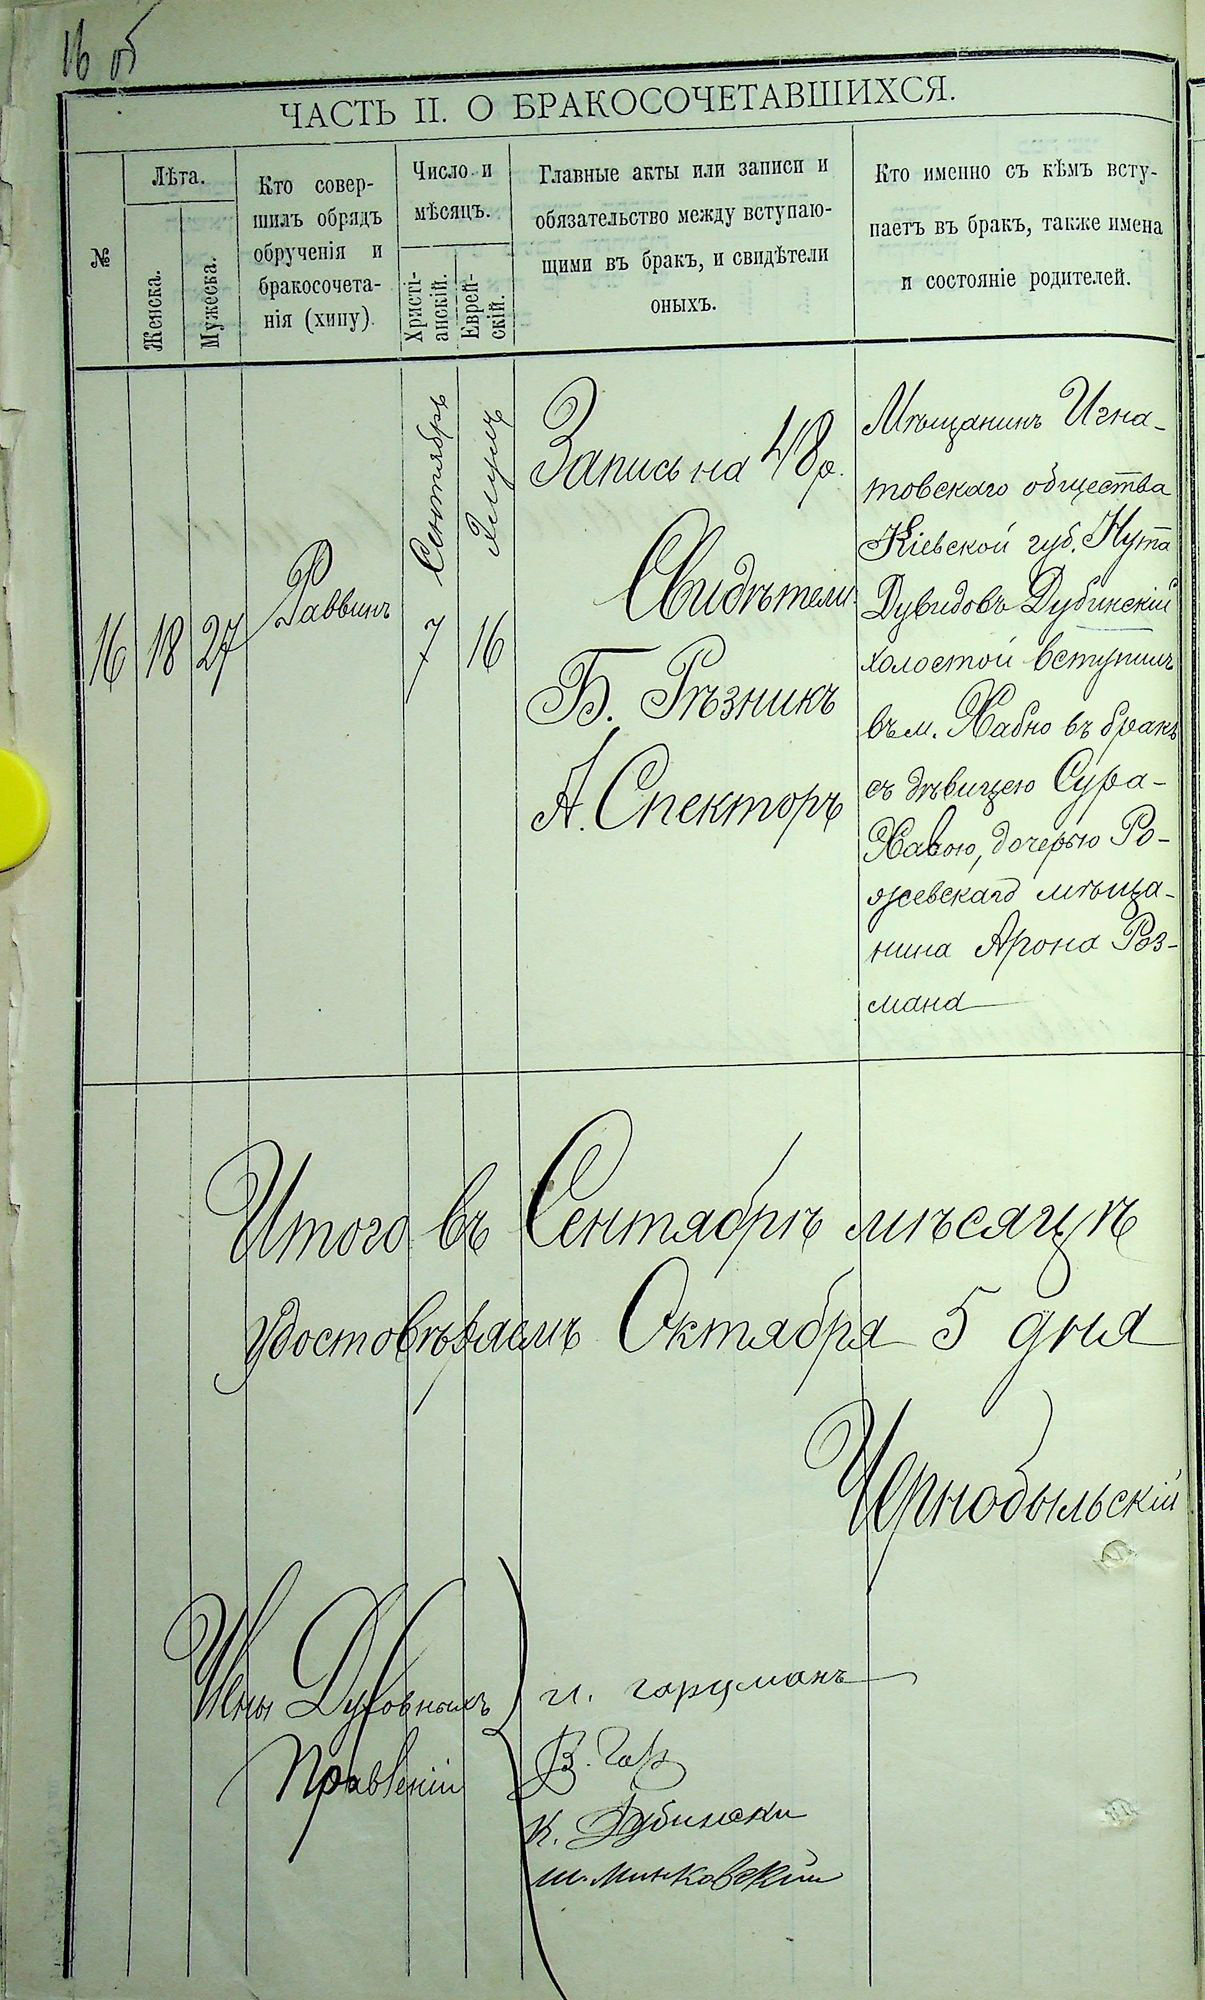 16 об
ЧАСТЬ II. О БРАКОСОЧЕТАВШИХСЯ.
№
Лѣта.
Женска.
Мужеска.
Кто совер-
шилъ обрядъ
обрученія и
бракосочета-
нія (хупу).
Число и
мѣсяцъ.
Христі-
анскій.
Еврей-
скій.
Главные акты или записи и
обязательство между вступаю-
щими въ бракъ, и свидѣтели
оныхъ.
Кто именно съ кѣмъ всту-
паетъ въ бракъ, также имена
и состояніе родителей.
16
18
27
Раввинъ
Сентябрь
7
Элулъ
16
Запись на 48 р.
Свидѣтели
Б. Рѣзникъ
А. Спекторъ
Мѣщанинъ Игна-
товскаго общества
Кіевской губ. Нута
Дувидовъ Дубинскій
холостой вступилъ
въ м. Хабно въ бракъ
съ дѣвицею Сура-
Хавою, дочерью Ро-
жевскаго мѣща-
нина Арона Роз-
мана
Итого въ Сентябрѣ мѣсяцѣ
удостовѣряемъ Октября 5 дня
Чернобыльскій
Члены Духовныхъ
Правленій
К. Дубински
Ш. Минковскій